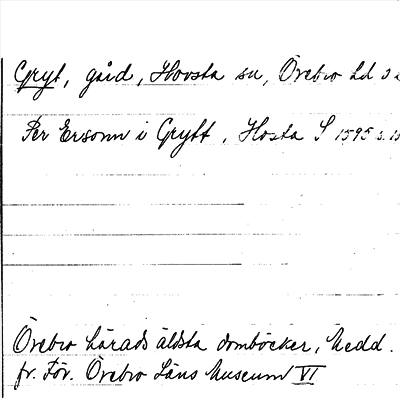 Gryt, gård, Hovsta sn, Örebro hd
Per Ersonn i Grytt, Hosta S 1595 s.
Örebro härads äldsta domböcker, Medd.
fr. För. Örebro Läns Museum VI